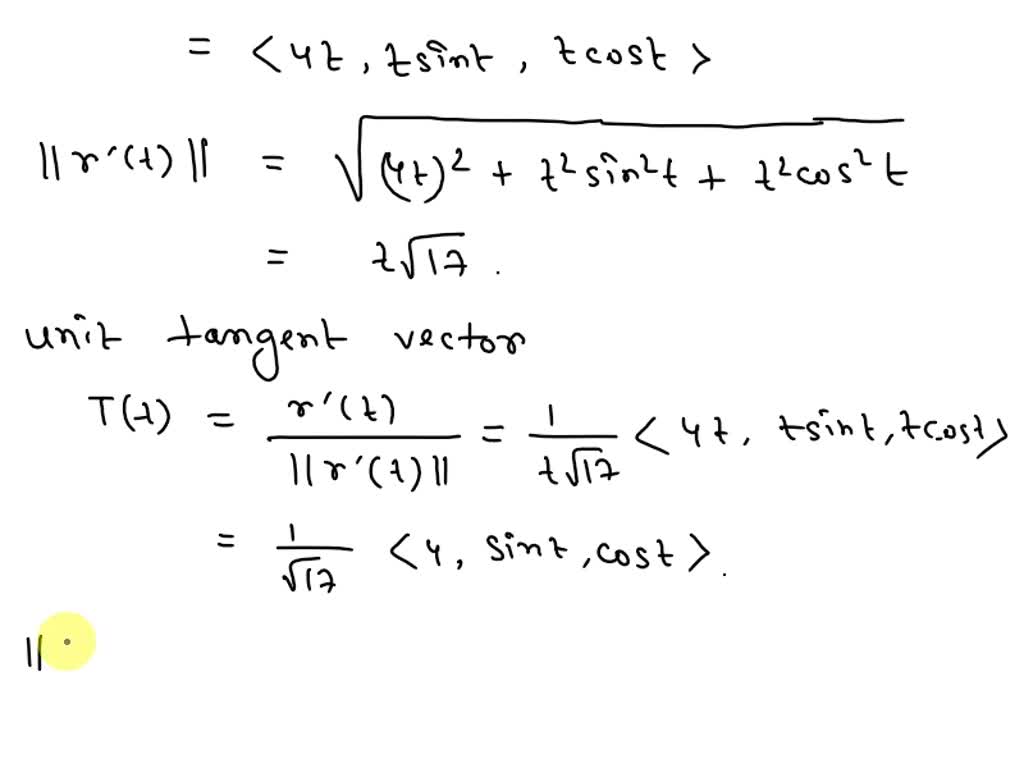 = < 4t, t sint, t cost >
||r'(t)|| = √((4t)² + t²sin²t + t²cos²t)
= t√17.
unit tangent vector
T(t) = r'(t) / ||r'(t)|| = 1 / t√17 < 4t, tsint, tcost >
= 1/√17 < 4, sint, cost >.
||